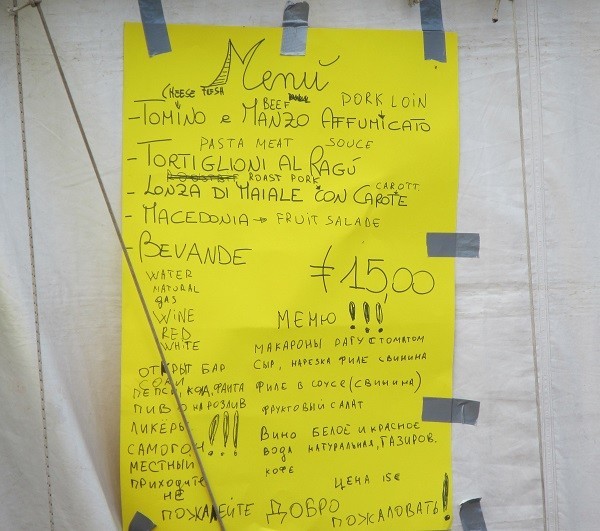 Menú
CHEESE FRESH BEEF PORK LOIN
- TOMINO e MANZO AFFUMICATO
PASTA MEAT SOUCE
- TORTIGLIONI AL RAGÚ
ROAST PORK CAROTT
- LONZA DI MAIALE CON CAROTE
- MACEDONIA → FRUIT SALADE
- BEVANDE
€ 15,00
WATER
NATURAL
gas
WINE
RED
WHITE
МЕНЮ !!!
МАКАРОНЫ РАГУ С ТОМАТОМ
СЫР, НАРЕЗКА ФИЛЕ СВИНИНА
ФИЛЕ В СОУСЕ (СВИНИНА)
ФРУКТОВЫЙ САЛАТ
ВИНО БЕЛОЕ И КРАСНОЕ
ВОДА НАТУРАЛЬНАЯ, ГАЗИРОВ.
КОФЕ
ЦЕНА 15€
ОТКРЫТ БАР
СОКИ
ПЕПСИ, КОЛА, ФАНТА
ПИВО НА РОЗЛИВ
ЛИКЁРЫ
САМОГОН !!!
МЕСТНЫЙ
ПРИХОДИТЕ
НЕ
ПОЖАЛЕЙТЕ ДОБРО
ПОЖАЛОВАТЬ!